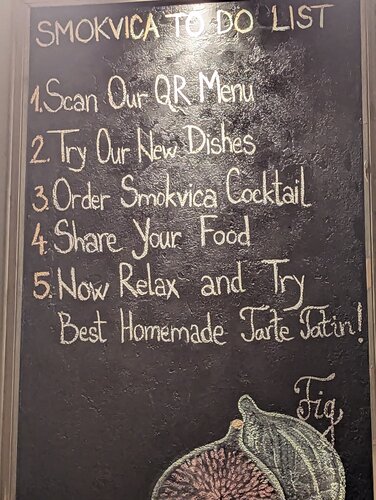 SMOKVICA TO DO LIST
1. Scan Our QR Menu
2. Try Our New Dishes
3. Order Smokvica Cocktail
4. Share Your Food
5. Now Relax and Try
Best Homemade Tarte Tatin!
Fig